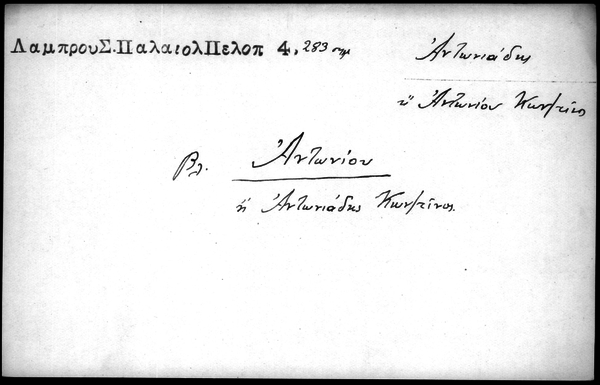 ΛαμπρουΣ.ΠαλαιολΠελοπ 4, 283 σημ
Ἀντωνιάδης
ἢ Ἀντωνίου Κων/τῖνος
βλ. Ἀντωνίου
ἢ Ἀντωνιάδης Κων/τῖνος.